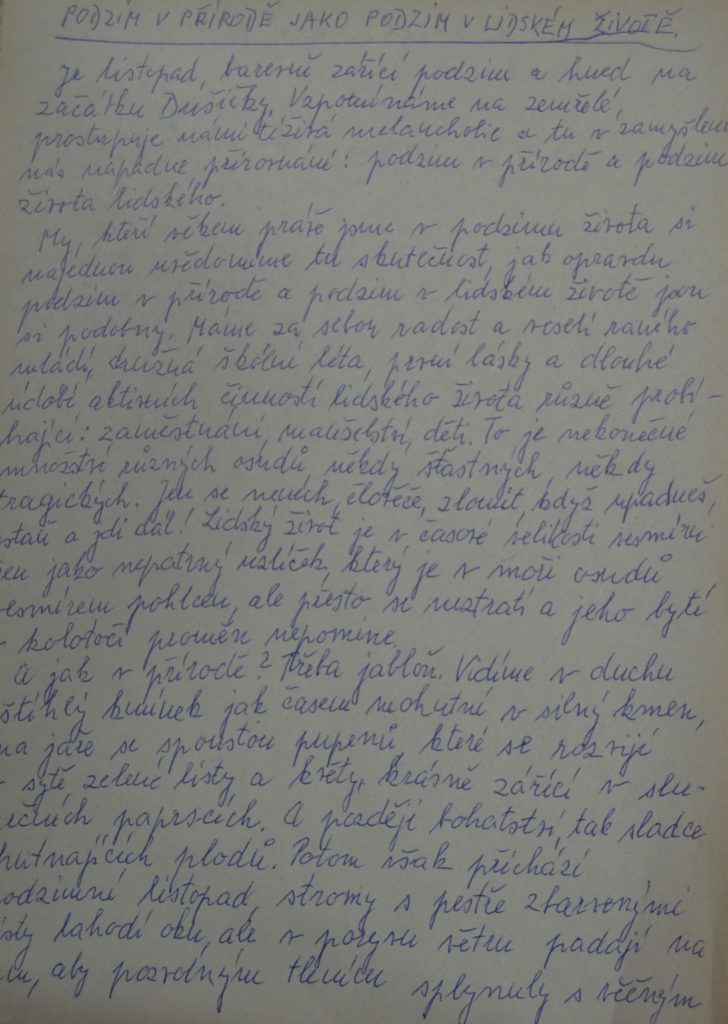 PODZIM V PŘÍRODĚ JAKO PODZIM V LIDSKÉM ŽIVOTĚ.
Je listopad, barevně zářící podzim a hned na
začátku Dušičky. Vzpomínáme na zemřelé,
prostupuje námi tíživá melancholie a tu v zamyšlení
nás napadne přirovnání: podzim v přírodě a podzim
života lidského.
My, kteří věkem právě jsme v podzimu života si
najednou uvědomíme tu skutečnost, jak opravdu
podzim v přírodě a podzim v lidském životě jsou
si podobny. Máme za sebou radost a veselí raného
mládí, školní léta, první lásky a dlouhé
údobí aktivních činností lidského života různě probí-
hající: zaměstnání, manželství, děti. To je nekonečné
množství různých osudů, někdy šťastných, někdy
tragických. Jen se nenech, človče, zlomit, když upadneš,
vstaň a jdi dál! Lidský život je v časové velikosti vesmíru
jen jako nepatrný uzlíček, který je v moři osudů
vesmírem pohlcen, ale přesto se neztratí a jeho bytí
v kolotoči proměn nepomine.
A jak v přírodě? Třeba jabloň. Vidíme v duchu
štíhlý kmínek jak časem mohutní v silný kmen,
na jaře se spoustou pupenů, které se rozvijí
v sytě zelené listy a květy, krásně zářící v slu-
nečních paprscích. A později bohatství, tak sladce
chutnajících plodů. Potom však přichází
podzimní listopad, stromy s pestře zbarvenými
listy lahodí oku, ale v poryvu větru padají na
zem, aby pozvolným tlením splynuly s věčným